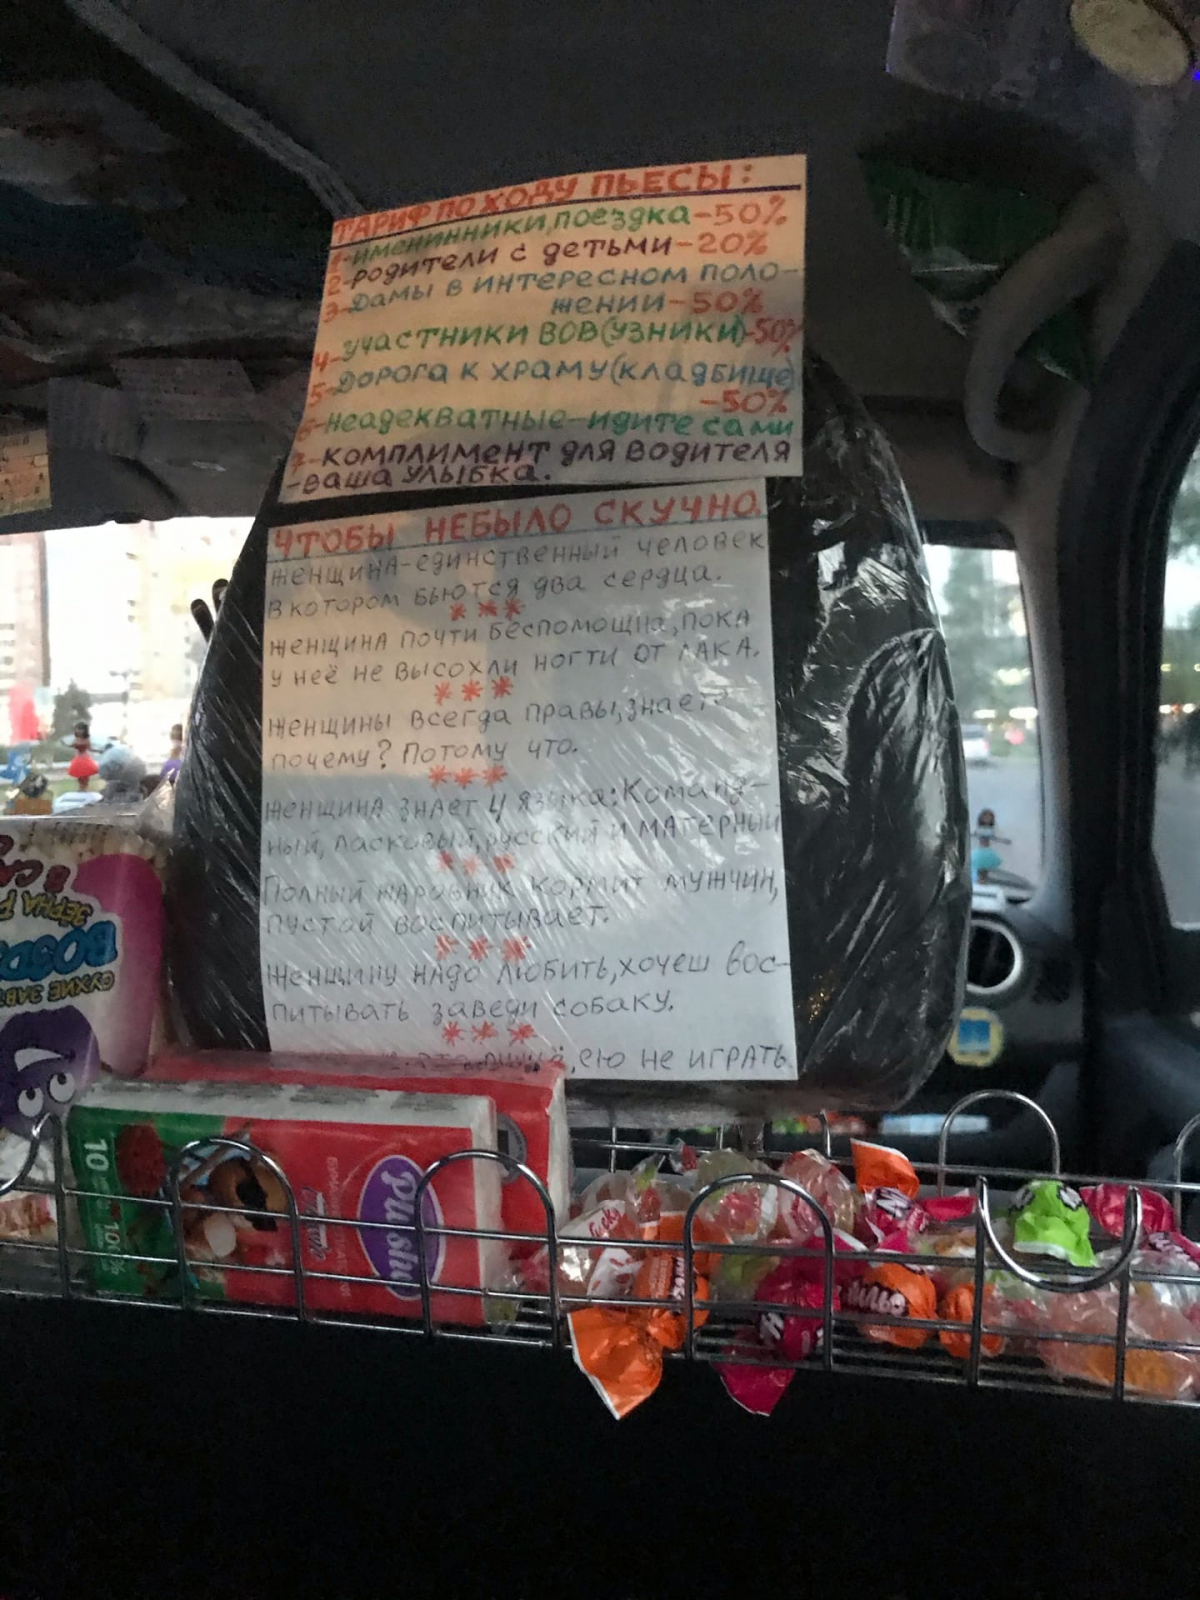 ТАРИФ ПО ХОДУ ПЬЕСЫ:
1-именинники, поездка-50%
2-родители с детьми-20%
3-Дамы в интересном поло-
жении-50%
4-участники ВОВ(узники)-50%
5-Дорога к храму(кладбище)
-50%
6-неадекватные-идите сами
7-комплимент для водителя
-ваша улыбка.
ЧТОБЫ НЕБЫЛО СКУЧНО.
Женщина-единственный человек
в котором бьются два сердца.
***
Женщина почти беспомощна, пока
у неё не высохли ногти от лака.
***
Женщины всегда правы, знает
почему? Потому что.
***
Женщина знает 4 языка: Команд-
ный, ласковый, русский и матерный
***
Полный кормит мужчин,
пустой воспитывает.
***
Женщину надо любить, хочеш вос-
питывать заведи собаку.
***
ею не играть
В
ЗЁРНА
ВОЗД
СУХИЕ ЗАВ
10
Pushi